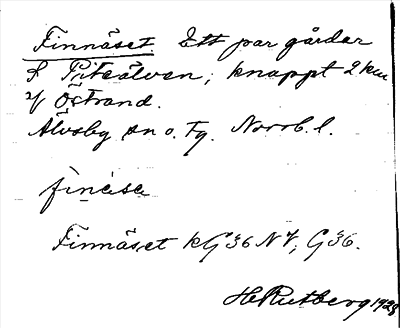 Finnäset Ett par gårdar
f Piteälven, knappt 2 km
Östrand.
Älvsby sn o. tg. Norrb. l.
finèse
Finnäset kG36 NV, G36.
H Rutberg 1928